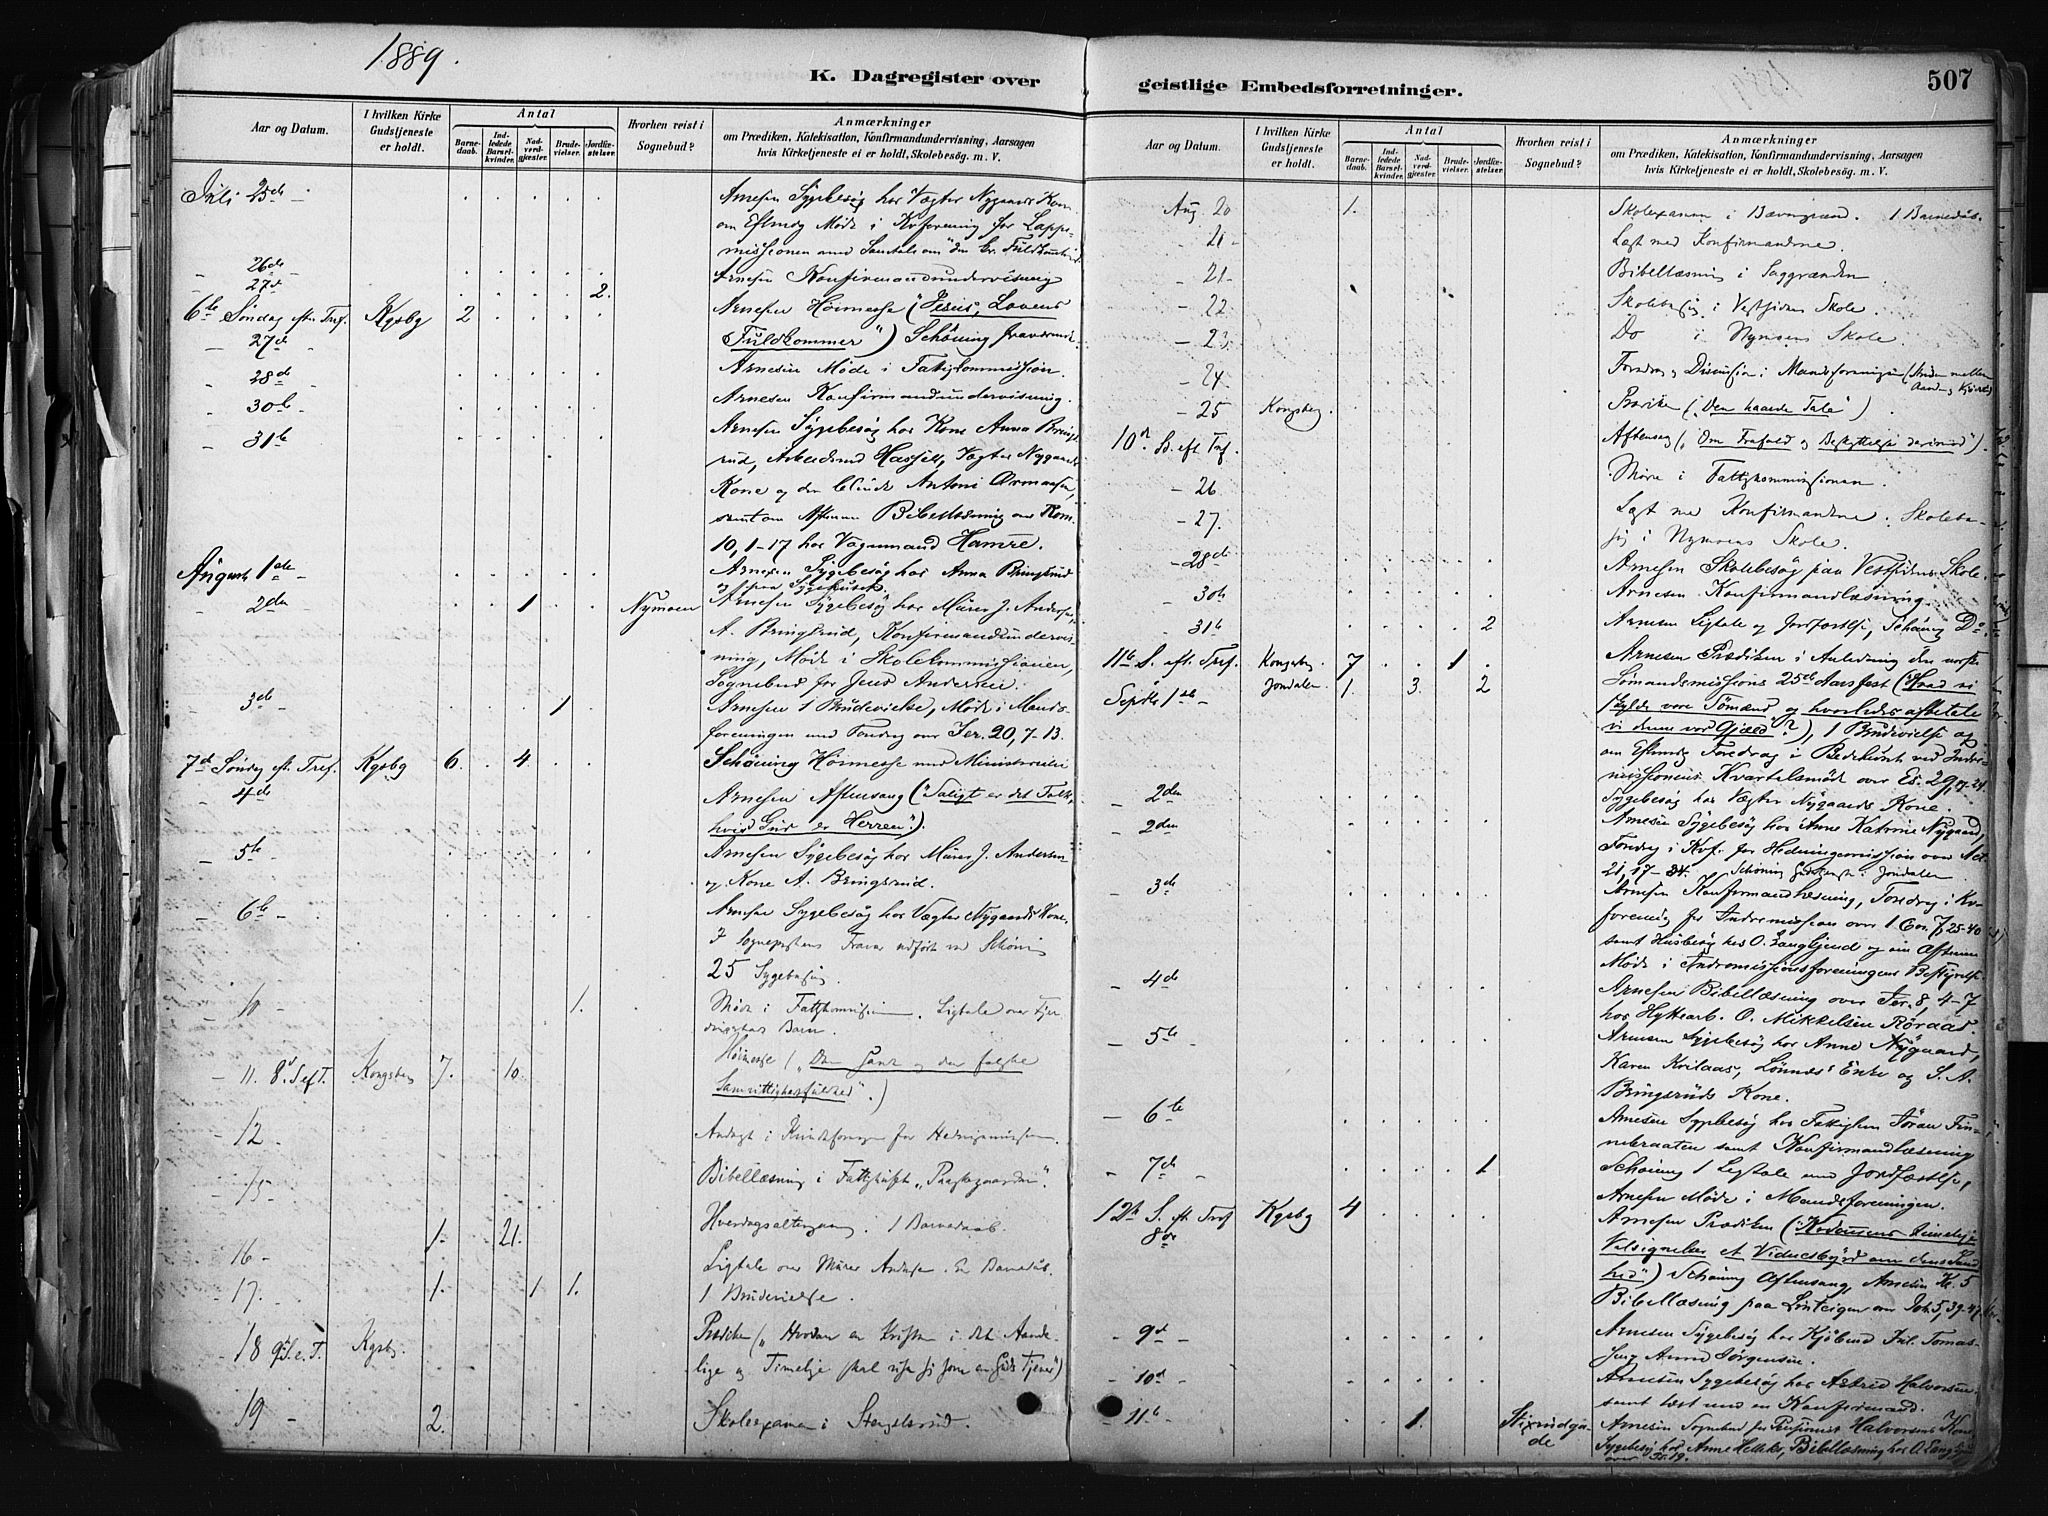 1889.
K. Dagregister over
geistlige Embedsforretninger.
507
Aar og Datum.
I hvilken Kirke Gudstjeneste er holdt.
Antal
Barnedaab.
Indledede Barselkvinder.
Nadverdgjester.
Brudevielser.
Jordfæstelser.
Hvorhen reist i Sognebud?
Anmærkninger
om Prædiken, Katekisation, Konfirmandundervisning, Aarsagen
hvis Kirketjeneste ei er holdt, Skolebesøg. m. V.
Juli 25de - Arnesen Sygebesøg hos Vægter Nygaards Kone
om Eftmdg Møde i Kvforening for Lappe-
missionen med Samtale om
- 26de Arnesen Konfirmandundervisning
- 27de 2.
6te Søndag efter Tref. Kgsbg 2 Arnesen Høimesse ("Jesus, Lovens
- 27de Fuldkommer") Schöning
- 28de Arnesen Møde i Fattigkommission.
- 30te Arnesen Konfirmandundervisning.
- 31te Arnesen Sygebesøg hos Kone Anna Brings-
rud, Vægter Nygaards
Kone og den blinde Antoni
samt om Aftenen Bibellæsning over Rom.
10, 1-17 hos Vognmand Hamre.
August 1ste - Arnesen Sygebesøg hos Anna Bringsrud
og paa Sygehuset.
- 2den 1 Nymoen Arnesen Sygebesøg hos Murer J. Andersen,
A. Bringsrud, Konfirmandundervis-
ning, Møde i Skolekommissionen,
Sognebud for Jens Andersen.
- 3de 1 Arnesen 1 Brudevielse, Møde i Mands-
foreningen med Foredrag over Jer. 20, 7-13.
7de Søndag eft. Tref. Kgsbg 6. 4. Schöning Høimesse med Ministerielle
- 4de Arnesen Aftensang ("Saligt er det Folk,
hvis Gud er Herren").
- 5te Arnesen Sygebesøg hos Murer J. Andersen
og Kone A. Bringsrud.
- 6te - Arnesen Sygebesøg hos Vægter Nygaards Kone.
I Sogneprestens Fravær udført ved Schöning
25 Sygebesøg
- 10 1. Møde i Fattigkommissionen. Ligtale over
Barn.
- 11. 8. S. e. T. Kongsberg 7. 10. Høimesse ("Den sande og den falske
Samvittighedsfuldhed".)
- 12 Andagt i Kvindeforeningen for Hedningemissionen.
- 15 Bibellæsning i Fattighuset "Præstegaarden".
- 16 - 1. 21. Hverdagsaltergang. 1 Barnedaab
- 17. 1. 1 1. Ligtale over Murer Andersen. En Barnedåb.
1 Brudevielse.
- 18 9. S. e. T. Kgsbg. Prædiken ("Hvordan en Kristen i det Aande-
lige og Timelige skal vise sig som en Guds Tjener")
- 19 - 2. Skoleexamen i Stengelsrud.
Aar og Datum.
I hvilken Kirke Gudstjeneste er holdt.
Antal
Barnedaab.
Indledede Barselkvinder.
Nadverdgjester.
Brudevielser.
Jordfæstelser.
Hvorhen reist i Sognebud?
Anmærkninger
om Prædiken, Katekisation, Konfirmandundervisning, Aarsagen
hvis Kirketjeneste ei er holdt, Skolebesøg. m. V.
Aug. 20 1. Skoleexamen i 1 Barnedåb.
- 21 - Læst med Konfirmanderne.
- 21 - Bibellæsning i Saggrænden
- 22 Skolebesøg i Vestsidens Skole.
- 23 Do i Nymoens Skole.
- 24 Foredrag og Discussion i Mandsforeningen
- 25 Kongsberg Prædiken ("Den haarde Tale").
10de S. eft. Tref. Aftensang ("Om Frafald og Beskyttelse derimod").
- 26 Møde i Fattigkommissionen.
- 27. Læst med Konfirmanderne. Skolebe-
søg i Nymoens Skole.
- 28de Arnesen Skolebesøg paa Vestsidens Skole.
- 30te Arnesen Konfirmandlæsning.
- 31te 2 Arnesen Ligtale og Jordfæstelse, Schöning Do
11te S. eft. Tref. Kongsberg. 7 1 Arnesen Prædiken i Anledning den norske
Septbr 1ste - Jondalen 1. 3. 2 Sømandsmissions 25de Aarsfest (Hvad vi
skylde vore Sømænd og hvorledes afbetale
vi denne vor Gjæld?), 1 Brudevielse og
om Eftmdg Foredrag i Bedehuset ved Indre-
missionens Kvartalsmøde over Es. 29,
- 2den Sygebesøg hos Vægter Nygaards Kone.
- 2den Arnesen Sygebesøg hos Anne Katrine Nygaard,
Foredrag i Kvf. for Hedningemission over Act.
21, 17-34. Schöning Gudstjeneste i Jondalen.
- 3de Arnesen Konfirmandlæsning, Foredrag i Kv-
forening for Indremission over 1 Cor. 7, 25-40
samt Husbesøg hos O. Langljend og om Aftenen
Møde i Indremissionsforeningens Bestyrelse
- 4de Arnesen Bibellæsning over Jer. 8, 4-7
hos Hyttearb. O. Mikkelsen Røraas.
- 5te Arnesen Sygebesøg hos Anne Nygaard,
Karen Kvilaas, Lønnæs' Enke og S. A.
Bringsruds Kone.
- 6te Arnesen Sygebesøg hos Fattiglem Jöran
samt Konfirmandlæsning
- 7de - 1 Schöning 1 Ligtale med Jordfæstelse,
Arnesen Møde i Mandsforeningen.
12te S. eft. Tref Kgsbg 4 Arnesen Prædiken
8de Velsignelse et Vidnesbyrd om dens Sand-
hed") Schöning Aftensang, Arnesen Kl. 5
Bibellæsning paa om Joh. 5, 39-47.
- 9de - Arnesen Sygebesøg hos Kjøbmd Jul. Tomas-
sen, Anne Jörgensen.
- 10de - Arnesen Sygebesøg hos Astrid Halvorsen
samt læst med en Konfirmand.
- 11te 1. Stixrudgaarde Arnesen Sognebud for Pensionist Halvorsens Kone,
Sygebesøg hos Anne Bibellæsning hos O. Langljend